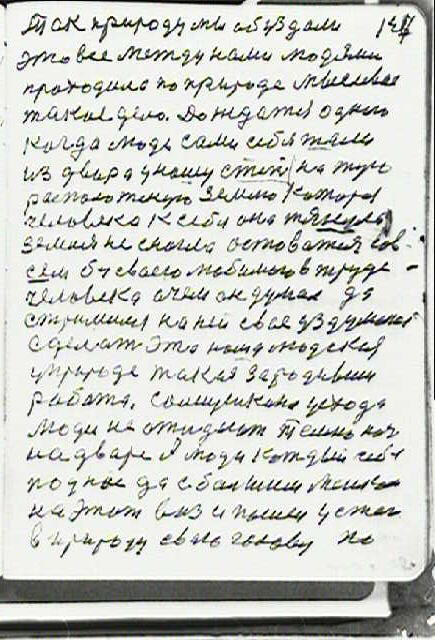 Так природу мы обуздали 147
это все между нами людями
проходило по природе мыслевое
такое дело. Дождатся одного
когда люди сами себя
из двора у нашу степ на тую
расположеную землю которая
человека к себе она тянула
земля не смогла оставатся сов-
сем без своего любимого в труде
человека о чем он думал да
стримился на ней свое уздуманое
сделат Это наша людская
у природе такая зародивши
работа. солнушка на уходе
люди не ожидают темно ноч
на дворе А люди каждый себе
поднял да с большим мешком
на этот воз и пошел у степ
в природу свою голову но